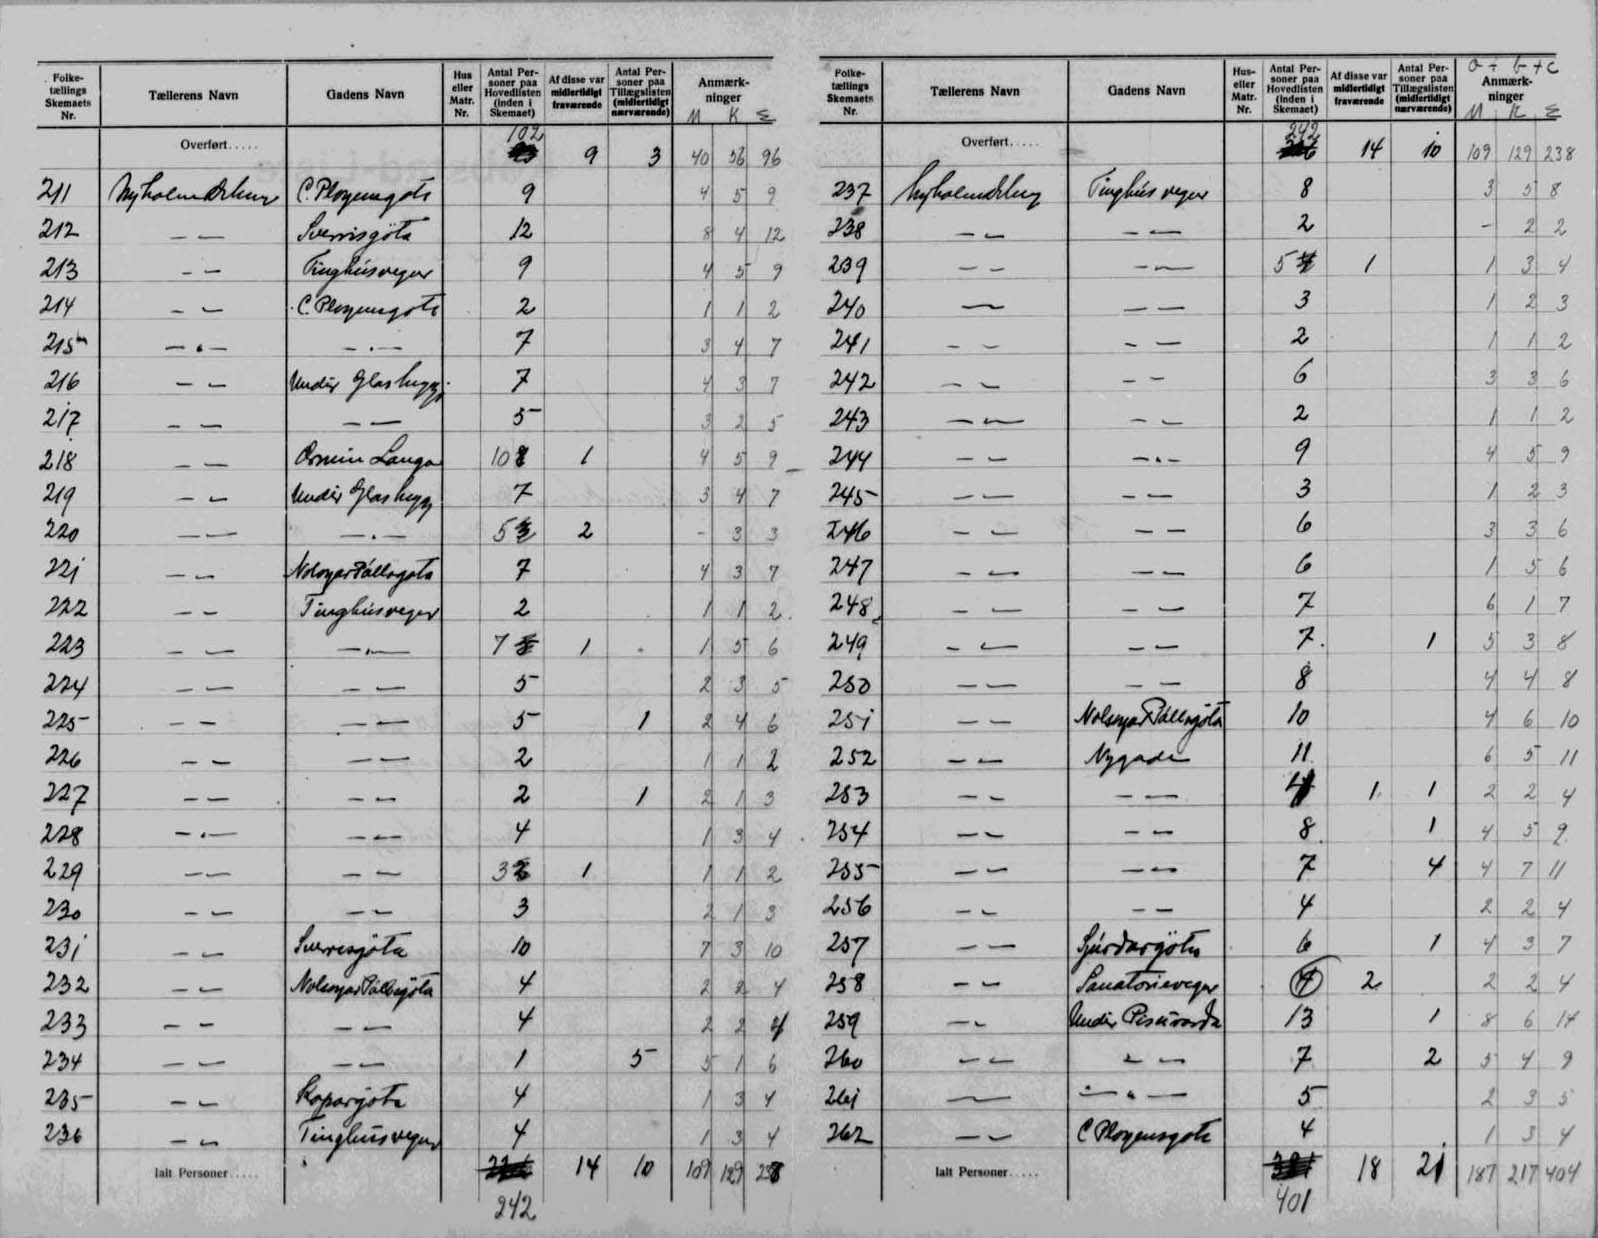 Folke-tællings Skemaets Nr. | Tællerens Navn | Gadens Navn | Hus eller Matr. Nr. | Antal Personer paa Hovedlisten (inden i Skemaet) | Af disse var midlertidigt fraværende | Antal Personer paa Tillægslisten (midlertidigt nærværende) | Anmærkninger M K Σ
Overført..... 102 9 3 40 56 96
211 C. Ployensgøta 9 4 5 9
212 — — Sverrisgøta 12 8 4 12
213 — — Tinghúsvegur 9 4 5 9
214 — — C. Ployensgøta 2 1 1 2
215 — — — — 7 3 4 7
216 — — Undir Glashygg. 7 4 3 7
217 — — — — 5 3 2 5
218 — — Ormin Langa 10 1 4 5 9
219 — — Undir Glashygg 7 3 4 7
220 — — — — 5 2 - 3 3
221 — — Nolsoyar Pállsgøta 7 4 3 7
222 — — Tinghúsvegur 2 1 1 2
223 — — — — 7 1 1 5 6
224 — — — — 5 2 3 5
225 — — — — 5 1 2 4 6
226 — — — — 2 1 1 2
227 — — — — 2 1 2 1 3
228 — — — — 4 1 3 4
229 — — — — 3 1 1 1 2
230 — — — — 3 2 1 3
231 — — Sverrisgøta 10 7 3 10
232 — — Nolsoyar Pállsgøta 4 2 2 4
233 — — — — 4 2 2 4
234 — — — — 1 5 5 1 6
235 — — Kopargøta 4 1 3 4
236 — — Tinghúsvegur 4 1 3 4
Ialt Personer..... 14 10 109 129 238
242
Folke-tællings Skemaets Nr. | Tællerens Navn | Gadens Navn | Hus- eller Matr. Nr. | Antal Personer paa Hovedlisten (inden i Skemaet) | Af disse var midlertidigt fraværende | Antal Personer paa Tillægslisten (midlertidigt nærværende) | a ÷ b + c Anmærkninger M K Σ
Overført..... 242 14 10 109 129 238
237 Tinghúsvegur 8 3 5 8
238 — — — — 2 - 2 2
239 — — — — 5 1 1 3 4
240 — — — 3 1 2 3
241 — — — — 2 1 1 2
242 — — — — 6 3 3 6
243 — — — — 2 1 1 2
244 — — — — 9 4 5 9
245 — — — — 3 1 2 3
246 — — — — 6 3 3 6
247 — — — — 6 1 5 6
248 — — — — 7 6 1 7
249 — — — — 7 1 5 3 8
250 — — — — 8 4 4 8
251 — — Nolsoyar Pállsgøta 10 4 6 10
252 — — Nygade 11 6 5 11
253 — — — — 4 1 1 2 2 4
254 — — — — 8 1 4 5 9
255 — — — — 7 4 4 7 11
256 — — — — 4 2 2 4
257 — — Sjúrdargøta 6 1 4 3 7
258 — — Sanatorievegur 4 2 2 2 4
259 — — Undir 13 1 8 6 14
260 — — — — 7 2 5 4 9
261 — — — 5 2 3 5
262 — — C Ployensgøta 4 1 3 4
Ialt Personer..... 18 21 187 217 404
401